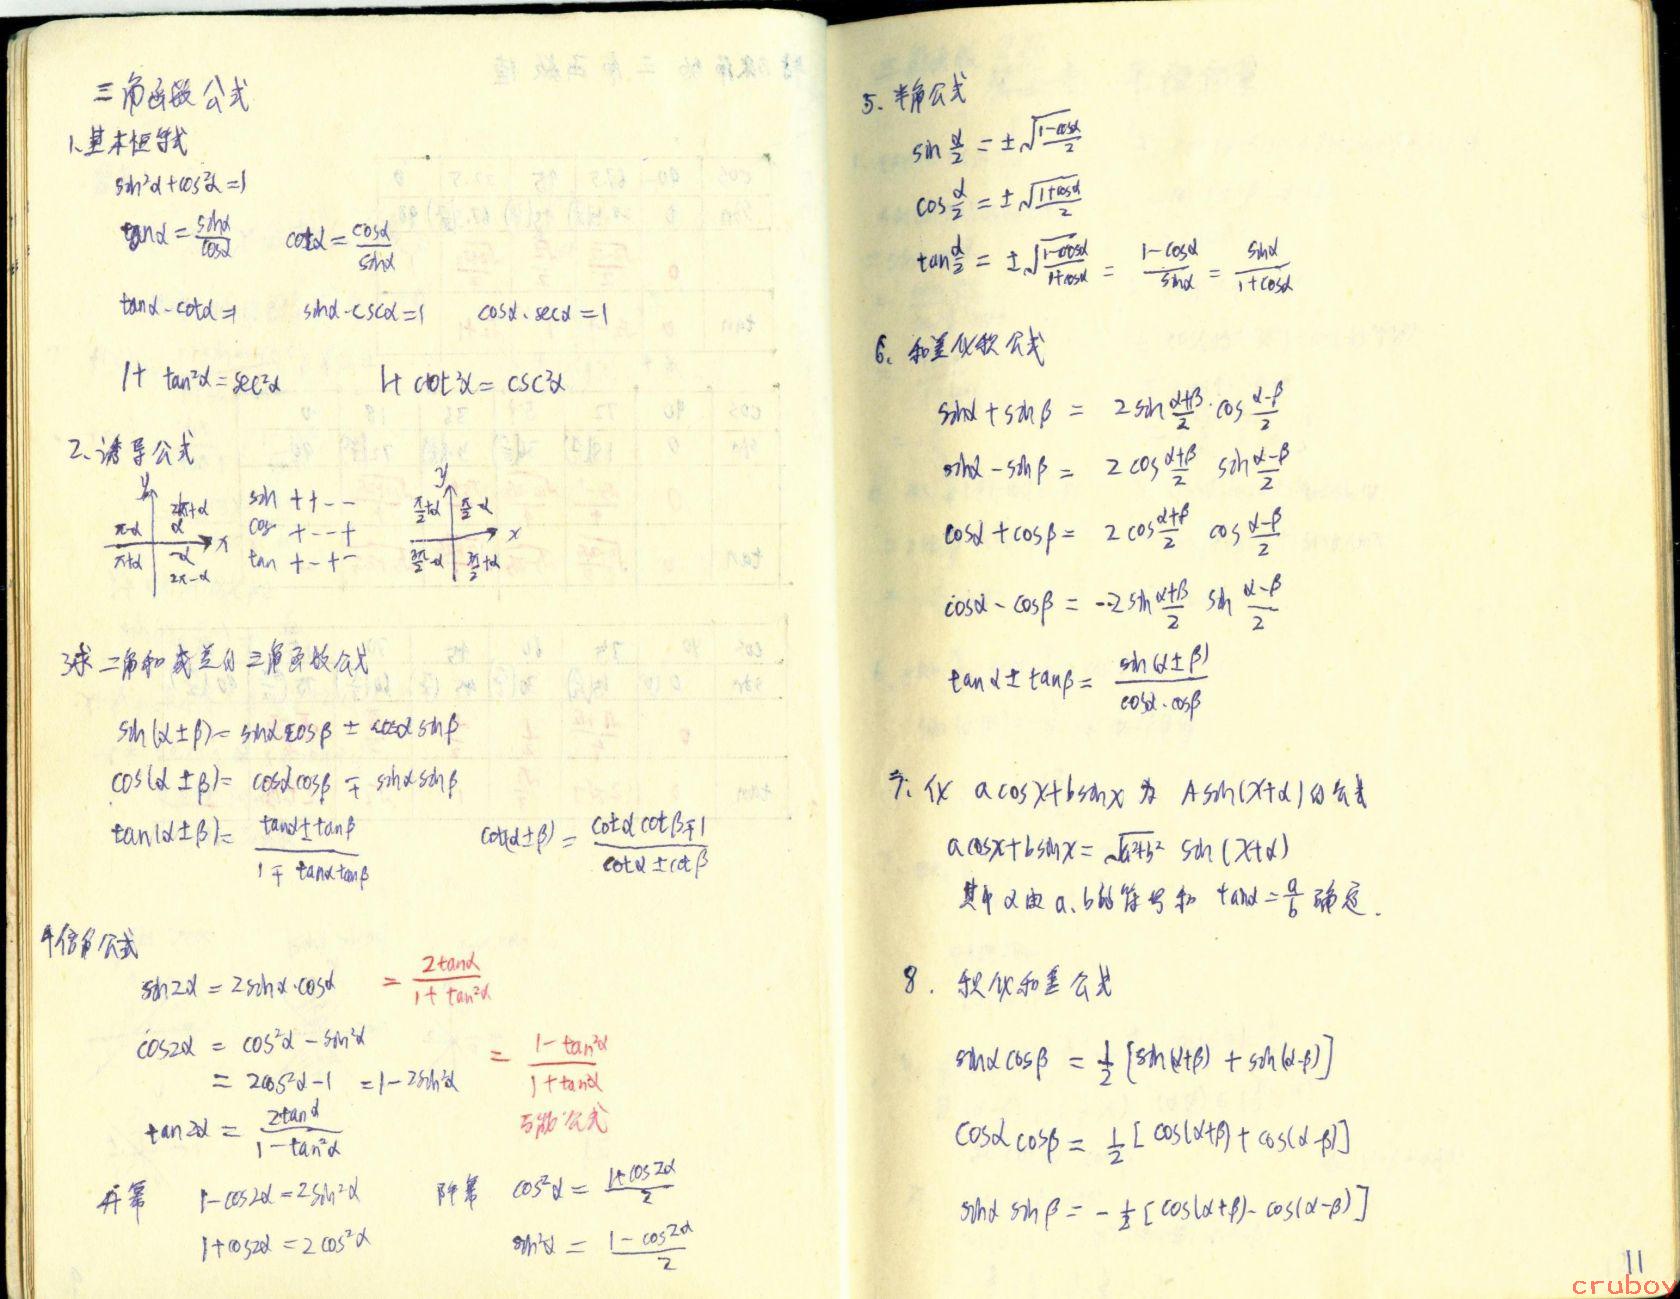 三角函数公式
1.基本恒等式
sin²α+cos²α=1
tanα = sinα/cosα   cotα = cosα/sinα
tanα·cotα=1   sinα·cscα=1   cosα·secα=1
1+ tan²α=sec²α   1+ cot²α= csc²α
2.诱导公式
y
π-α   2π+α
α
x
π+α   -α
2π-α
sin ++--
cos +--+
tan +-+-
y
π/2+α   π/2-α
x
3π/2-α   3π/2+α
3求二角和或差的三角函数公式
sin(α±β)= sinαcosβ ± cosαsinβ
cos(α±β)= cosαcosβ ∓ sinαsinβ
tan(α±β)= (tanα±tanβ)/(1∓tanαtanβ)   cot(α±β)= (cotαcotβ∓1)/(cotα±cotβ)
4倍角公式
sin2α = 2sinα·cosα = 2tanα/(1+tan²α)
cos2α = cos²α-sin²α = (1-tan²α)/(1+tan²α)
= 2cos²α-1 =1-2sin²α
公式
tan2α = 2tanα/(1-tan²α)
升幂   1-cos2α=2sin²α   降幂   cos²α = (1+cos2α)/2
1+cos2α=2cos²α   sin²α = (1-cos2α)/2
5、半角公式
sin α/2 = ±√(1-cosα)/2
cos α/2 = ±√(1+cosα)/2
tan α/2 = ±√(1-cosα)/(1+cosα) = (1-cosα)/sinα = sinα/(1+cosα)
6、和差化积公式
sinα+sinβ = 2sin (α+β)/2 · cos (α-β)/2
sinα-sinβ = 2cos (α+β)/2 sin (α-β)/2
cosα+cosβ = 2cos (α+β)/2 cos (α-β)/2
cosα-cosβ = -2sin (α+β)/2 sin (α-β)/2
tanα±tanβ = sin(α±β)/(cosα·cosβ)
7、化 acosx+bsinx 为 Asin(x+α)的公式
acosx+bsinx=√a²+b² sin(x+α)
其中α由a、b的符号和 tanα=a/b 确定.
8. 积化和差公式
sinαcosβ = 1/2[sin(α+β)+sin(α-β)]
cosαcosβ = 1/2[cos(α+β)+cos(α-β)]
sinαsinβ = -1/2[cos(α+β)-cos(α-β)]
11
cruboy